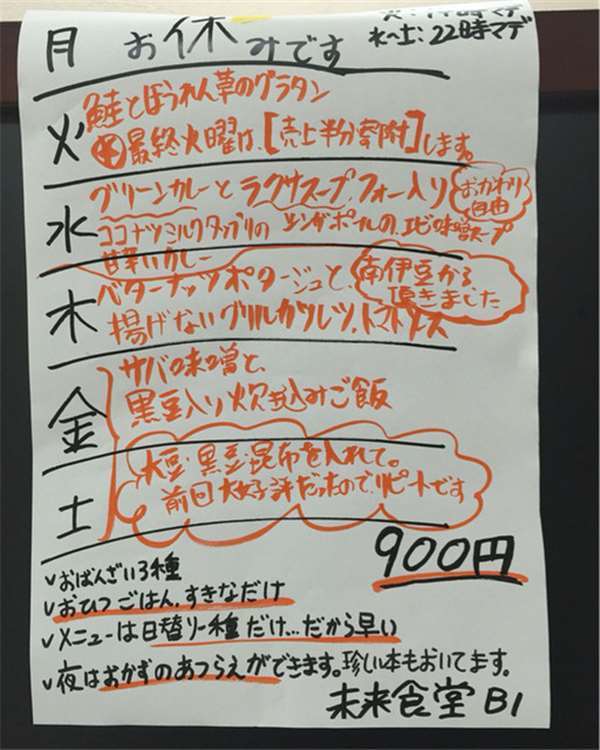 火:17時マデ
水~土:22時マデ
月 お休みです
火 鮭とほうれん草のグラタン
最終火曜は、[売上半分寄附]します。
水 グリーンカレーと ラクサスープ、フォー入り
おかわり自由
ココナツミルクタップリの シンガポールの、エビ味噌スープ
甘辛いカレー
木 バターナッツポタージュと、
南伊豆から
頂きました
揚げないグリルカツレツ、トマトソース
金 サバ味噌と、
黒豆入り炊き込みご飯
土 大豆・黒豆・昆布を入れて。
前回大好評だったので、リピートです
900円
✓おばんざい3種
✓おひつごはん、すきなだけ
✓メニューは日替り一種だけ…だから早い
✓夜はおかずのあつらえができます。珍しい本もおいてます。
未来食堂 B1